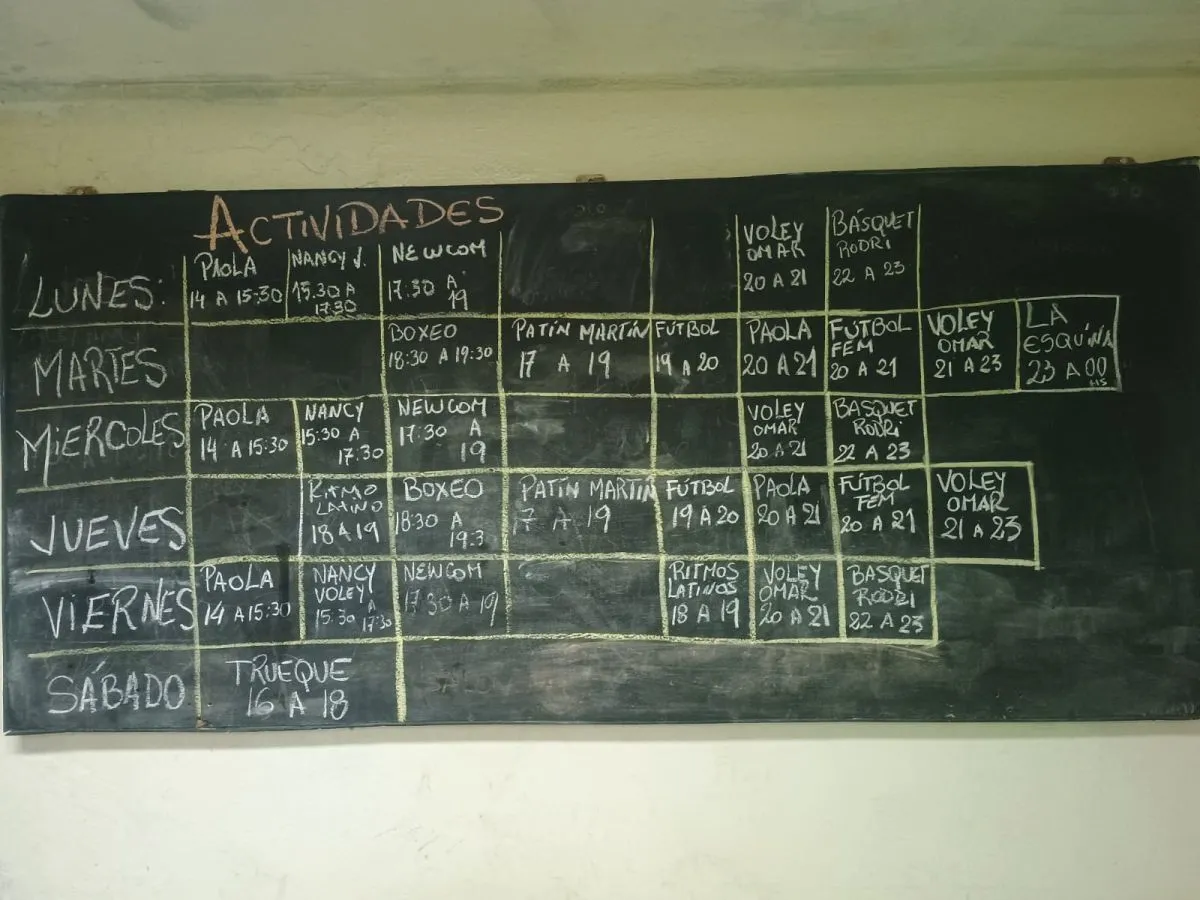 ACTIVIDADES
LUNES:
PAOLA
14 A 15:30
NANCY J.
15:30 A
17:30
NEWCOM
17:30 A
19
VOLEY
OMAR
20 A 21
BÁSQUET
RODRI
22 A 23
MARTES
BOXEO
18:30 A 19:30
PATÍN MARTÍN
17 A 19
FÚTBOL
19 A 20
PAOLA
20 A 21
FÚTBOL
FEM
20 A 21
VOLEY
OMAR
21 A 23
LA
ESQUINA
23 A 00
HS
MIERCOLES
PAOLA
14 A 15:30
NANCY
15:30 A
17:30
NEWCOM
17:30 A
19
VOLEY
OMAR
20 A 21
BASQUET
RODRI
22 A 23
JUEVES
RITMO
LATINO
18 A 19
BOXEO
18:30 A
19:3
PATÍN MARTÍN
17 A 19
FÚTBOL
19 A 20
PAOLA
20 A 21
FÚTBOL
FEM
20 A 21
VOLEY
OMAR
21 A 23
VIERNES
PAOLA
14 A 15:30
NANCY
VOLEY
15:30 A 17:30
NEWCOM
17:30 A 19
RITMOS
LATINOS
18 A 19
VOLEY
OMAR
20 A 21
BASQUET
RODRI
22 A 23
SÁBADO
TRUEQUE
16 A 18